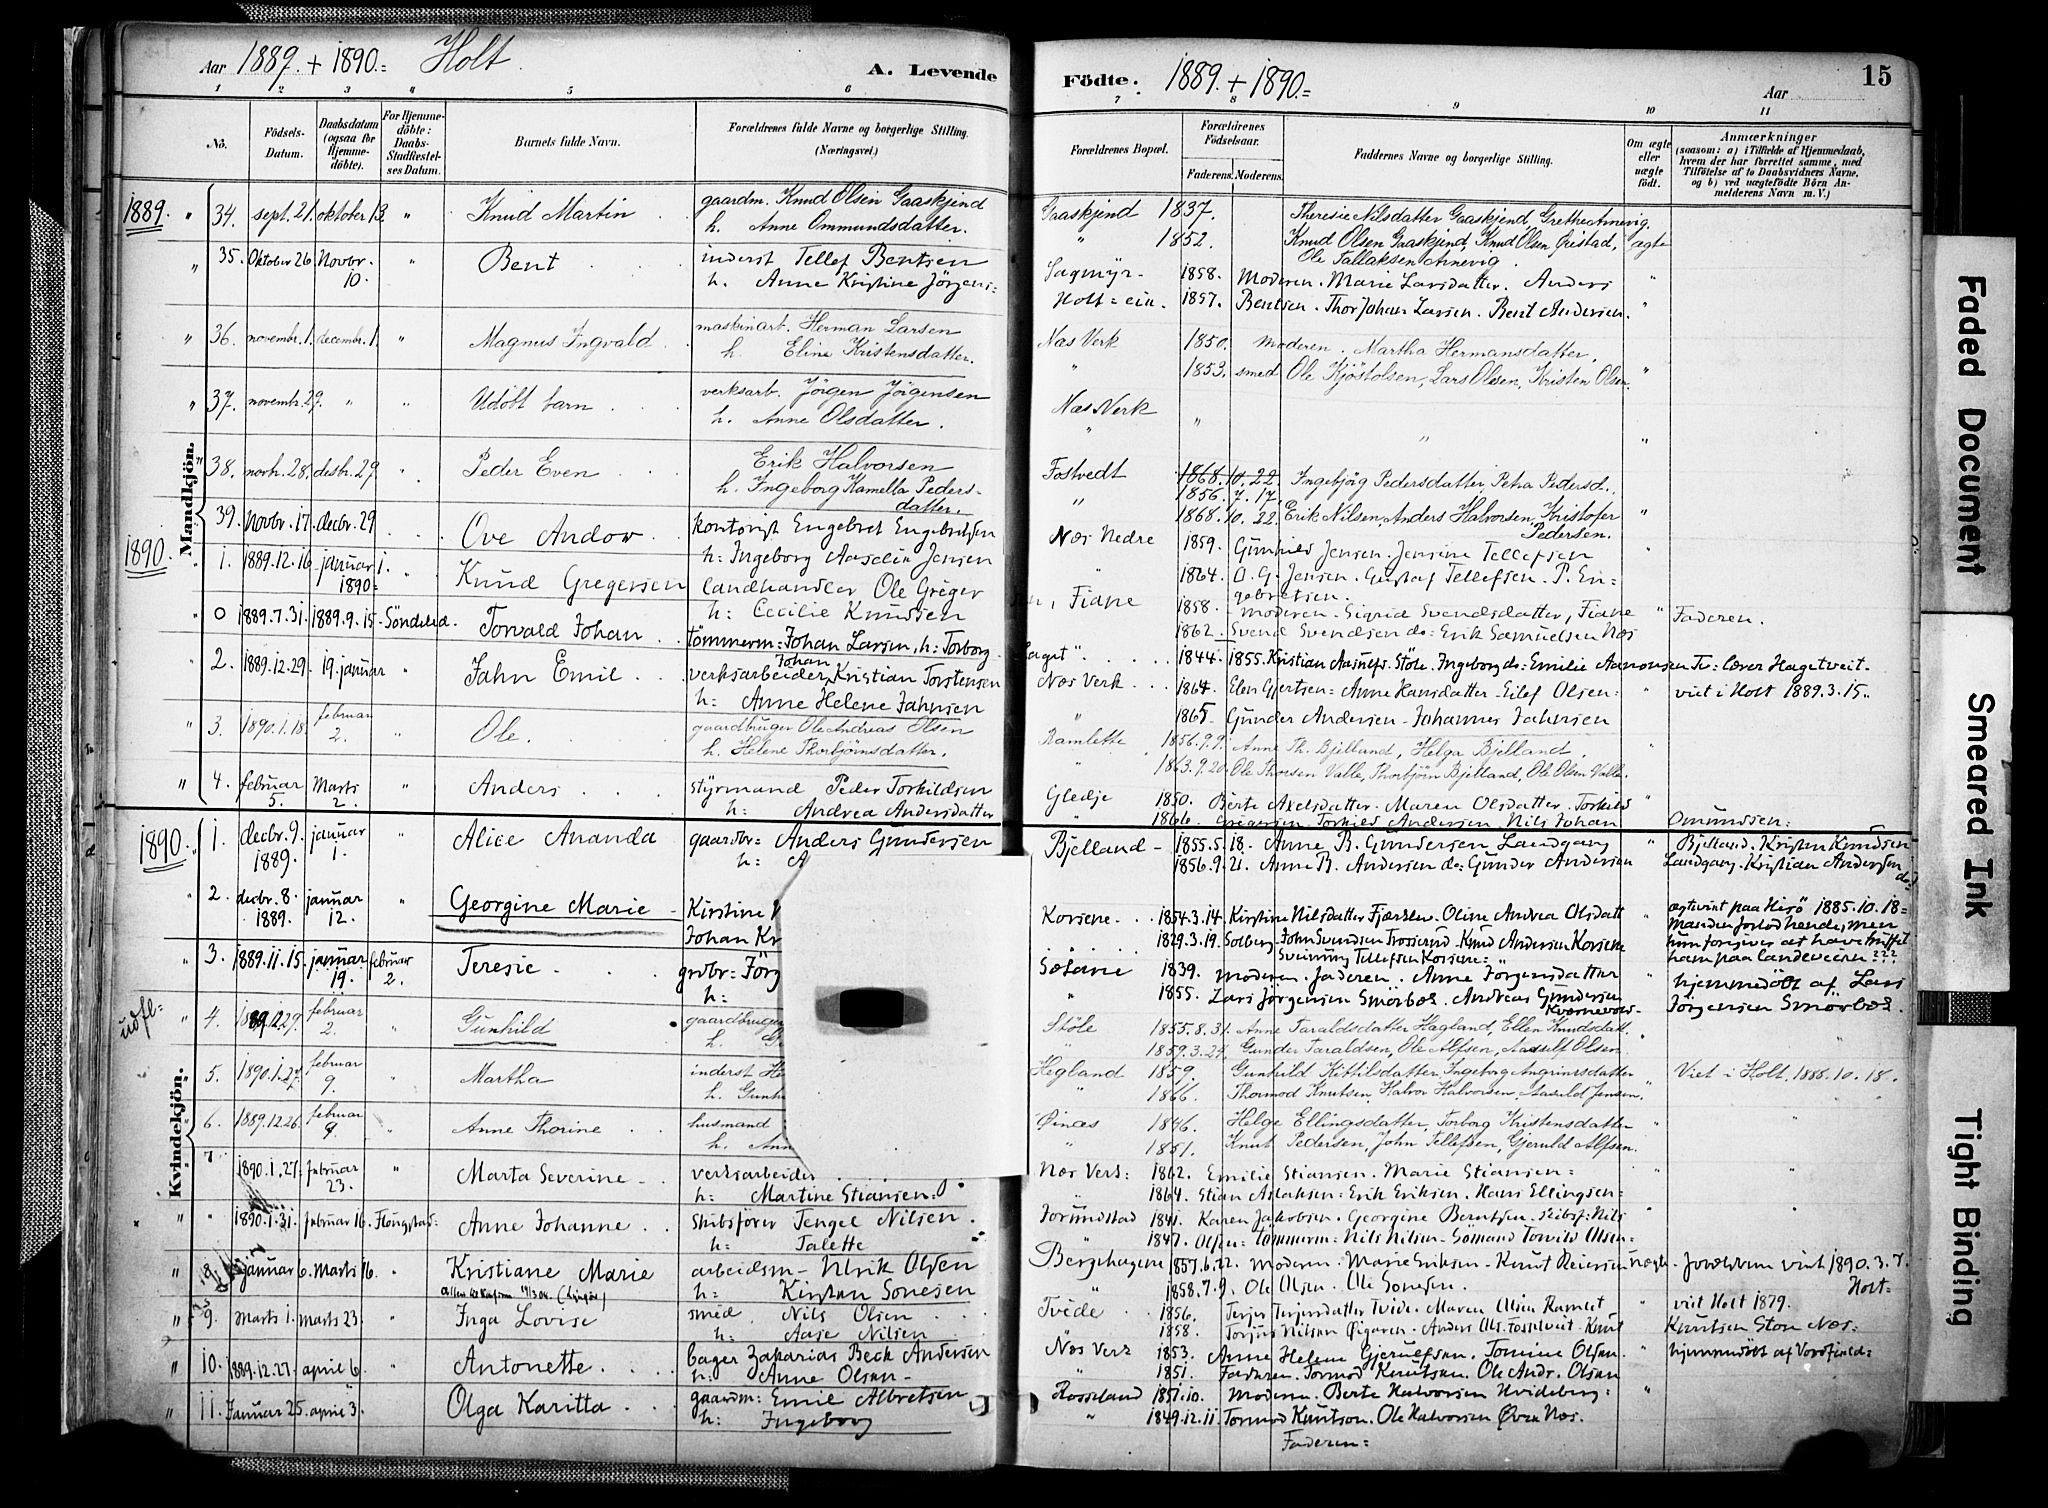 Aar 1889. + 1890. = Holt.
A. Levende
Födte. 1889. + 1890. =
Aar
15
1 2 3 4 5 6
7 8 9 10 11
No.
Födsels-Datum.
Daabsdatum (ogsaa for Hjemme-döbte).
For Hjemme-döbte: Daabs-Stadfæstel-ses Datum.
Barnets fulde Navn.
Forældrenes fulde Navne og borgerlige Stilling. (Næringsvei.)
Forældrenes Bopæl.
Forældrenes Födselsaar.
Faderens. Moderens.
Faddernes Navne og borgerlige Stilling.
Om ægte eller uægte födt.
Anmærkninger
(saasom: a) i Tilfælde af Hjemmedaab, hvem der har forrettet samme, med Tilföielse af to Daabsvidners Navne, og b) ved uægtefödte Börn An-melderens Navn m. V.)
Mandkjön.
1889. " 34. sept. 21. oktober 13. " Knud Martin gaardm. Knud Olsen Gaaskjend
h. Anne Ommundsdatter.
Gaaskjend 1837. Theresie Nilsdatter Gaaskjend Grethe Arnevig.
" 1852. Knud Olsen Gaaskjend, Knud Olsen, ægte
Ole Tallaksen Arnevig.
" 35. Oktober 26. Novbr. 10. " Bent inderst Tellef Bentsen
h. Anne Kristine Jörgens=
1858. Moderen. Marie Larsdatter. Anders "
Holt = ein. 1857. Bentsen. Thor Johan Larsen. Bent Andersen. "
" 36. novembr. 1. decembr. 1. " Magnus Ingvald maskinarb. Herman Larsen
h. Eline Kristensdatter.
Næs Verk 1850. Moderen. Martha Hermansdatter,
" 1853. smed Ole Kjöstolsen, Lars Olsen, Kristen Olsen. "
" 37. novembr. 29. " " Udöbt barn verksarb. Jörgen Jörgensen
h. Anne Olsdatter.
Næs Verk
" " " "
" 38. novb. 28. desbr. 29 Peder Even Erik Halvorsen
h. Ingeborg Kamella Peders-
datter.
Fostvedt 1868. 10. 22. Ingebjörg Pedersdatter, Petra Pedersd.
" 1856. 7. 17.
1868. 10. 22. Erik Nilsen, Anders Halvorsen, Kristofer "
Pedersen.
39. Novbr. 17. decbr. 29 Ove Andow kontorist Engebret Engebretsen
h: Ingeborg Aaselie Jensen
Næs Nedre 1859. Gunhild Jensen. Jensine Tellefsen "
" 1864. O. G. Jensen. Gustaf Tellefsen. P. En=
gebretsen.
1890. 1. 1889.12.16. januar 1. 1890= " Knud Gregersen landhandler Ole Greger
h: Cecilie Knudsen
Fiane 1858. Moderen. Sigrid Svendsdatter, Fiane " Faderen.
1862. Svend Svendsen do: Erik Samuelsen Næs
0 1889.7.31. 1889.9.15. Söndeled. Torvald Johan tömmerm: Johan Larsen, h: Torborg
1844. 1855. Kristian Aasulfs. Stöle. Ingeborg do: Emilie Aanonsen Tv: lærer Hagetveit.
" 2. 1889.12.29. 19. januar " Jahn Emil verksarbeider Johan Kristian Torstensen
h: Anne Helene Jahnsen
Næs Verk 1864. Elen Gjertsen = Anne Hansdatter - Eilef Olsen = " viet i Holt 1889.3.15..
" 1865. Gunder Andersen - Johannes Jahnsen
" 3. 1890.1.18. februar 2. " Ole. gaardbruger Ole Andreas Olsen
h. Helene Thorbjörnsdatter.
Ramlette 1856.9.9. Anne Th. Bjelland, Helga Bjelland, "
" 1863.9.20. Ole Thorsen Valle, Thorbjörn Bjelland, Ole Olsen Valle.
" 4. februar 5. Marts 2. " Anders styrmand Peder Torkildsen
h: Andrea Andersdatter
Gledje 1850. Berte Axelsdatter. Maren Olsdatter. Torkild "
" 1866. Gregersen Torkild Andersen Nils Johan Omundsen:
Kvindekjön.
1890. " 1. decbr. 9. 1889. januar 1. " Alice Ananda gaardbr: Anders Gundersen
h: A
Bjelland - 1855.5.18. Anne B. Gundersen Landgang " Bjelland. Kristen Knudsen
1856.9.21. Anne B. Andersen do: Gunder Andersen Landgang. Kristian Andersen do:
" 2. decbr. 8. 1889. januar 12. " Georgine Marie - Kirstine
Johan Kr
Korsene. 1854.3.14. Kirstine Nilsdatter Oline Andrea Olsdatt ægteviet paa Hisö 1885.10.18=
1829.3.19. Solberg. John Svendsen Knud Andersen Korsene Manden forlod hende, men
Svenning Tellefsen Korsene= " hun foregiver at have truffet
ham paa landeveien???
" 3. 1889.11.15. januar 19. februar 2. Teresie grdbr: Jörg
h:
1839. Moderen. Faderen. Anne Jörgensdatter " hjemmedöbt af Lars
" 1855. Lars Jörgensen Smörbos. Andreas Gundersen Jörgensen Smörbos.
udfl= " 4. februar 2. " Gunhild gaardbruger
h.
Stöle 1855.8.31. Anne Taraldsdatter Hagland, Ellen Knudsdatt. "
" 1859.3.24. Gunder Taraldsen, Ole Alfsen, Aadulf Olsen. "
" 5. 1890.1.27. februar 9. " Martha inderst
h. Gunh
Hegland 1859. Gunhild Kittilsdatter, Ingeborg Angrimsdatter Viet i Holt, 1886.10.18.
" 1866. Thormod Knutsen, Halvor Halvorsen, Aasuld Jensen. "
" 6. 1889.12.26. februar 9. " Anne Thorine husmand
h. Ann
Øinæs 1846. Helge Ellingsdatter, Torborg Kristensdatter "
" 1851. Knut Pedersen, John Tellefsen, Gjeruld Alfsen.
" 7 1890.1.27. februar 23. " Marta Severine verksarbeider
h: Martine Stiansen:
Næs Verk: 1862. Emilie Stiansen. Marie Stiansen= "
" 1864. Stian Aslaksen = Erik Eriksen. Hans Ellingsen=
" " 1890.1.31. februar 16. Flöugstad: Anne Johanne skibsförer Tengel Nilsen
h: Talette
Jorundstad 1841. Karen Jakobsen. Georgine Berntsen. Skibsf: Nils
" 1847. Olsen= Tömmerm: Nils Nilsen- Sömand Torvild Olsen=
" 8 januar 6. Marts 16. " Kristiane Marie arbeidsm- Ulrik Olsen
h: Kirstan Sonesen
Bergehagene 1857.6.22. Moderen. Marie Eriksen. Knut Reiersen uægte. Foreldrene viet 1890.3.7.
1858.7.9. Ole Olsen. Ole Sonesen. Holt=
" 9. Marts 1. marts 23. " Inga Lovise smed Nils Olsen
h: Aase Nilsen
Tvede 1856. Terjer Terjersdatter Tvide. Maren Olsen Ramlet " viet Holt 1879.
1858. Torjus Nilsen Øigaren. Anders Ols. Fosselveit. Knut Knutsen Ston Næs:
" 10. 1889.12.27. april 6. " Antonette bager Zakarias Beck Andersen
h: Anne Olsen-
Næs Verk 1853. Anne Helene Gjerulfsen. Tomine Olsen. " hjemmedöbt af
" 1851. Faderen. Tormod Knutsen. Ole Andr. Olsen
" 11. Januar 25. april 3. " Olga Karitta gaardm: Emil Albretsen
h: Ingeborg
Rosseland 1851.10. Moderen. Berte Halvorsen Hvideberg= "
" 1849.12.11. Tormod Knutsen. Ole Halvorsen Øvre Næs.
Faderen=
Faded Document
Smeared Ink
Tight Binding